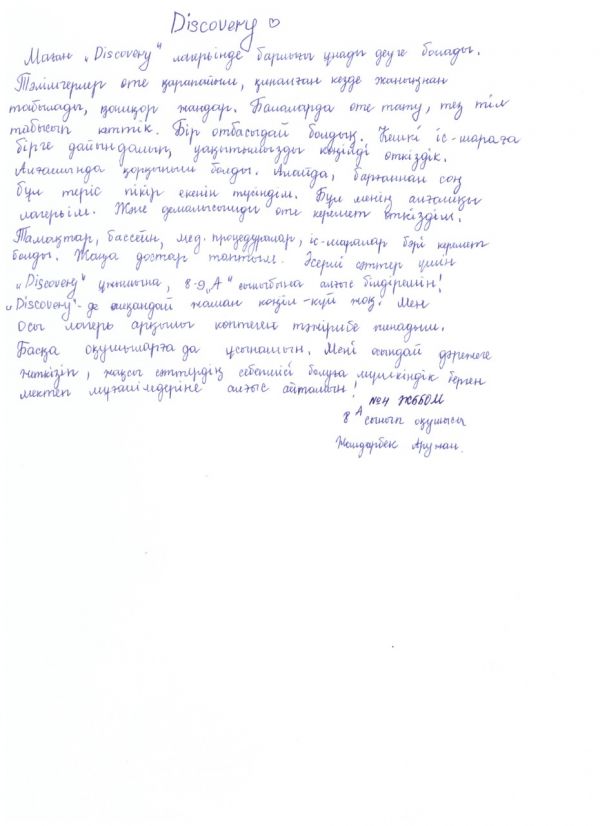 Discovery ♡
Маған „Discovery" лагерьінде барлығы ұнады деуге болады.
Тәлімгерлер өте қарапайым, қиналған кезде жаныңнан
табылады, қамқор жандар. Балаларда өте тату, тез тіл
табысып кеттік. Бір отбасыдай болдық. Кешкі іс-шараға
бірге дайындалып, уақытымызды көңілді өткіздік.
Алғашында қорқыныш болды. Алайда, барғаннан соң
бұл теріс пікір екенін түсіндім. Бұл менің алғашқы
лагерьім. Және демалысымды өте керемет өткіздім.
Тамақтар, бассейн, мед. процедуралар, іс-шаралар бәрі керемет
болды. Жаңа достар таптым. Әсерлі сәттер үшін
„Discovery" ұжымына, 8-9 „А" сыныбына алғыс білдіремін!
„Discovery"-де ешқандай жаман көңіл-күй жоқ. Мен
осы лагерь арқылы көптеген тәжірибе жинадым.
Басқа оқушыларға да ұсынамын. Мені осындай дәрежеге
жеткізіп, жақсы сәттердің себепшісі болуға мүмкіндік берген
мектеп мұғалімдеріне алғыс айтамын!
№4 ЖББОМ
8 А сынып оқушысы
Жолдорбек Аружан.